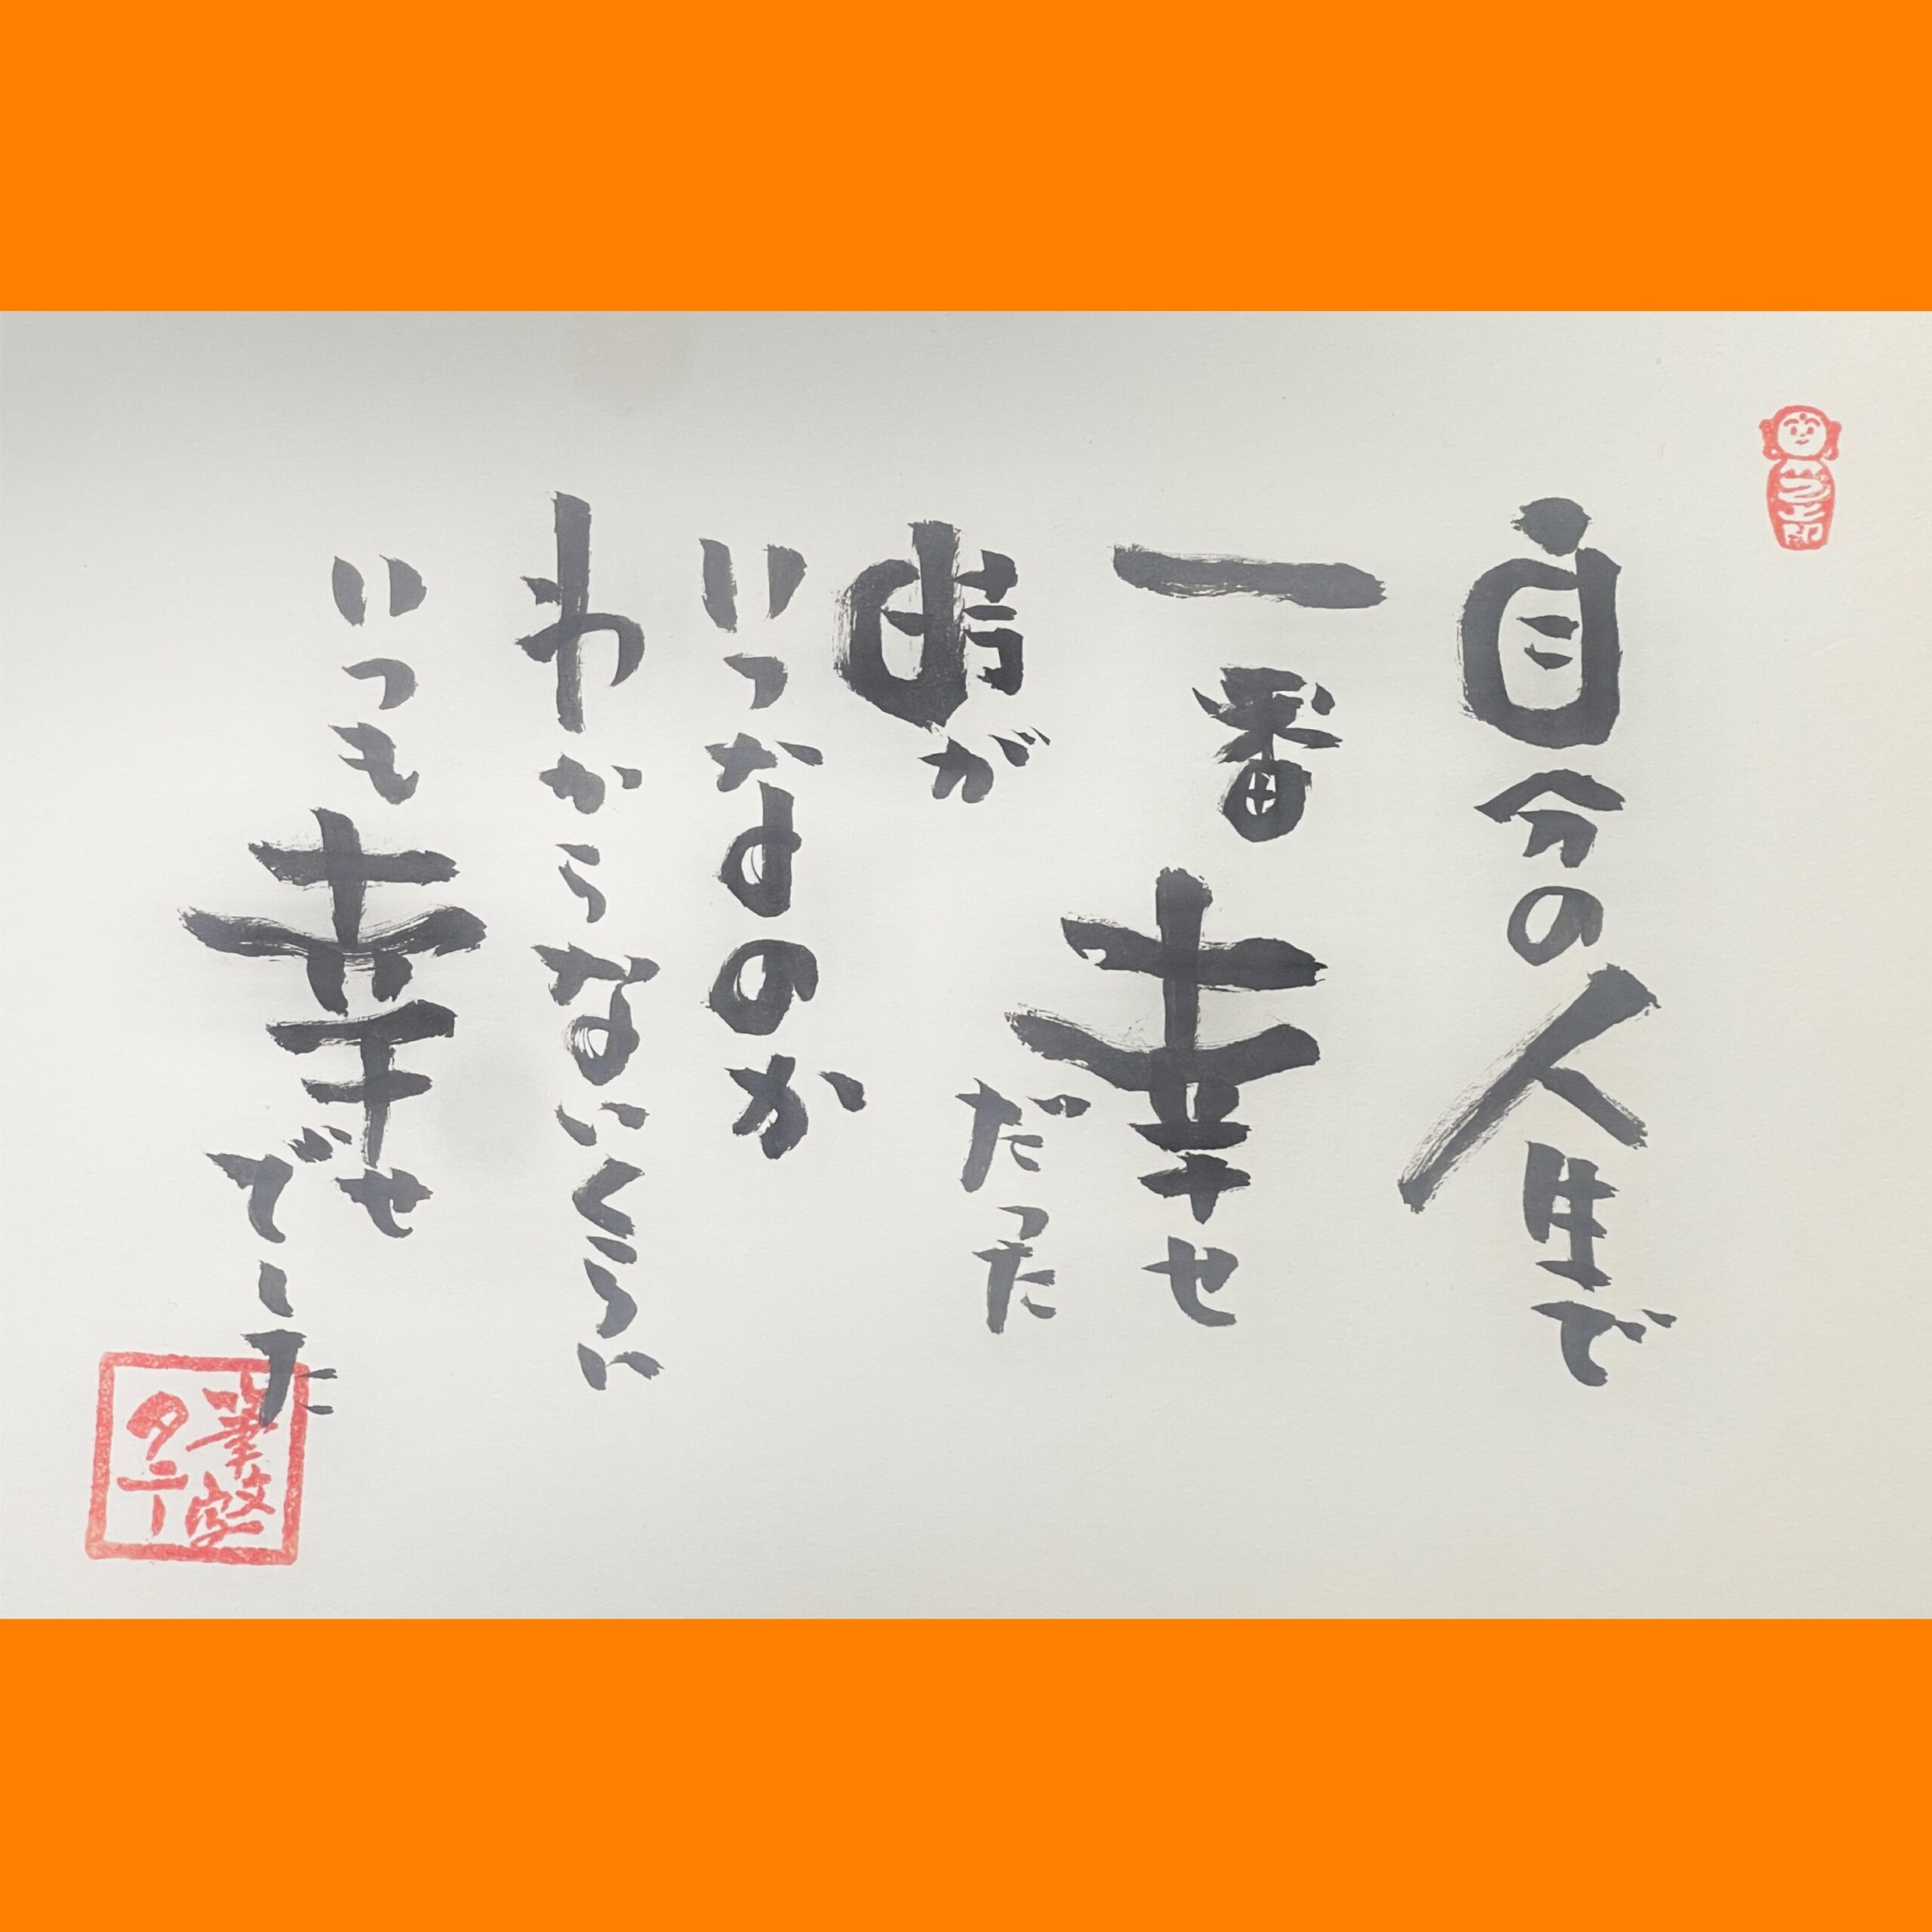 自分の人生で
一番幸せ
だった
時が
いつなのか
わからないくらい
いつも幸せ
でした